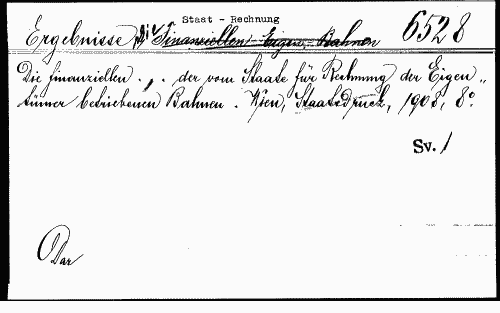 Staat - Rechnung
Ergebnisse, die Finanziellen Eigen-Bahnen 6528
Die finanziellen . , . der vom Staate für Rechnung der Eigen„
tümer betriebenen Bahnen. Wien, Staatsdruck, 1908, 8º.
Sv. 1
Dar